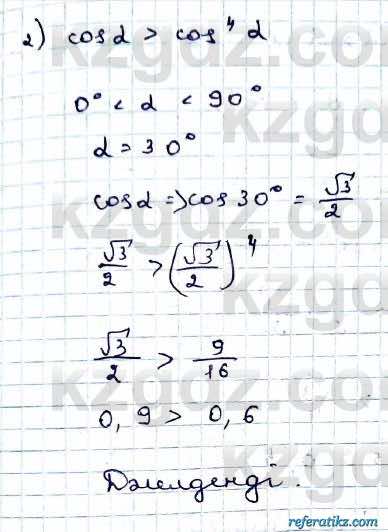 2) cosα > cos⁴α
0° < α < 90°
α = 30°
cosα => cos30° = √3/2
√3/2 > (√3/2)⁴
√3/2 > 9/16
0,9 > 0,6
Дәлелденді.
kzgdz.com
referatikz.com